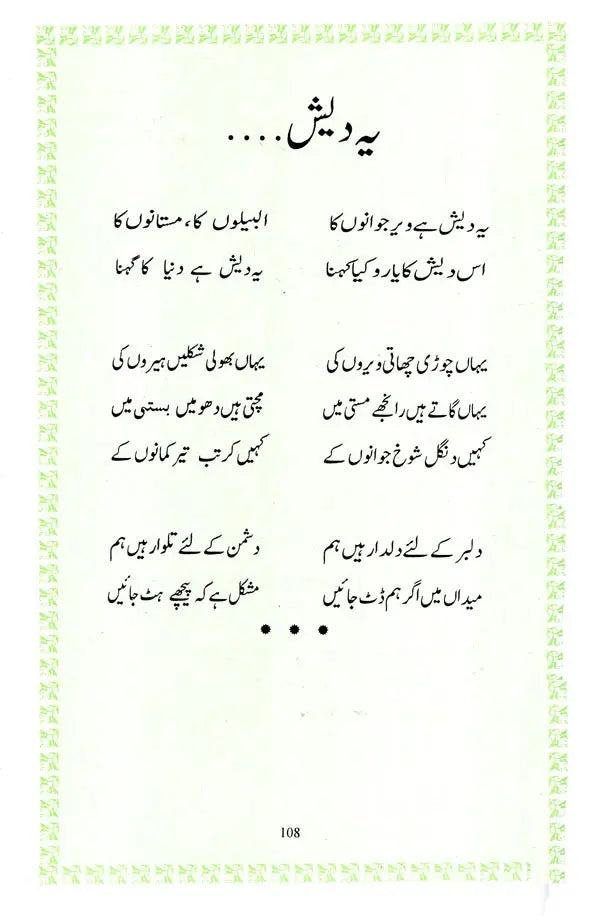 یہ دیش....
یہ دیش ہے ویر جوانوں کا البیلوں کا، مستانوں کا
اس دیش کا یارو کیا کہنا یہ دیش ہے دنیا کا گہنا
یہاں چوڑی چھاتی ویروں کی یہاں بھولی شکلیں ہیروں کی
یہاں گاتے ہیں رانجھے مستی میں مچتی ہیں دھومیں بستی میں
کہیں دنگل شوخ جوانوں کے کہیں کرتب تیر کمانوں کے
دلبر کے لئے دلدار ہیں ہم دشمن کے لئے تلوار ہیں ہم
میداں میں اگر ہم ڈٹ جائیں مشکل ہے کہ پیچھے ہٹ جائیں
108